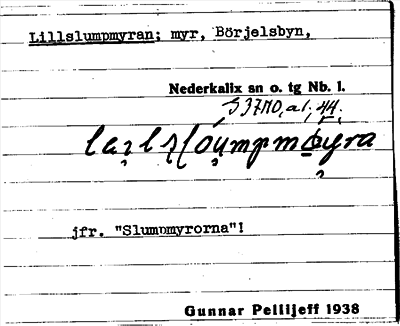 Lillslumpmyran; myr, Börjelsbyn,
Nederkalix sn o. tg Nb. l.
jfr. "Slumpmyrorna"!
Gunnar Pellijeff 1938